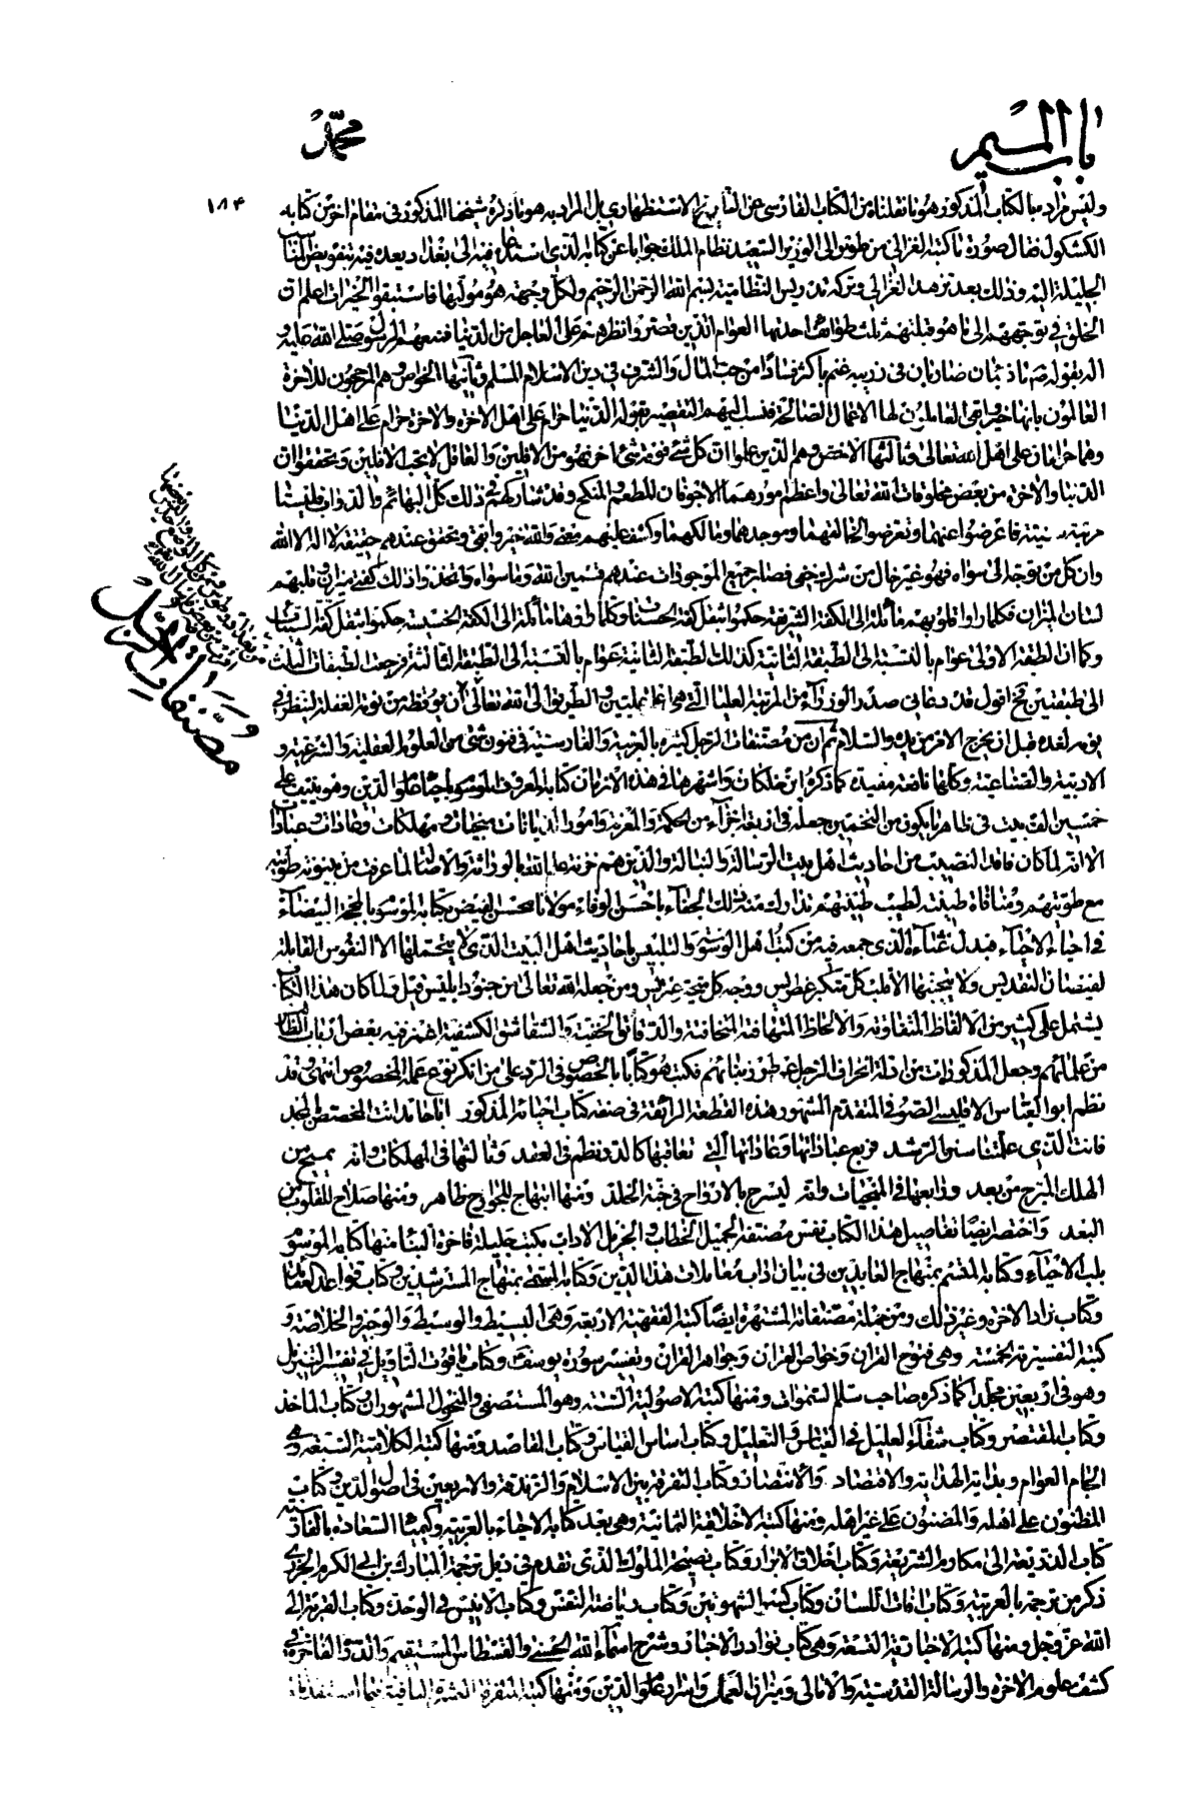 باب الميم
محمد
۱۸۴
وليس مراد بالكتاب المذكور هو ما نقلناه من الكتاب الفارسى عن التاريخ الاستظهارى بل المراد به هو ما ذكره شيخنا المذكور فى مقام اخر من كتابه
الكشكول فقال صورة ما كتبه الغزالى من طوس الى الوزير السعيد نظام الملك جوابا عن كتابه الذى استدعاه فيه الى بغداد يعده فيه بتفويض المناصب
الجليلة اليه وذلك بعد تزهد الغزالى وتركه تدريس النظامية بسم الله الرحمن الرحيم ولكل وجهة هو موليها فاستبقوا الخيرات اعلم ان
الخلق فى توجههم الى ما هو قبلتهم ثلث طوائف احدها العوام الذين قصروا نظرهم على العاجل من الدنيا فمنعهم الرسول صلى الله عليه و
اله بقوله ما ذئبان ضاريان فى زريبة غنم باكثر فسادا من حب المال والشرف فى دين الاسلام المسلم وثانيها الخواص وهم المرجحون للاخرة
العالمون بانها خير وابقى العاملون لها الاعمال الصالحة فنسب اليهم التقصير بقوله الدنيا حرام على اهل الاخرة والاخرة حرام على اهل الدنيا
وهما حرامان على اهل الله تعالى وثالثها الاخص وهم الذين علموا ان كل شئ فوقه شئ اخر فهو من الافلين والعاقل لا يحب الافلين وتحققوا ان
الدنيا والاخرة من بعض مخلوقات الله تعالى واعظم امورهما الاجوفان للمطعم والمنكح وقد شاركهم فى ذلك كل البهائم والدواب فليستا
مرتبة سنية فاعرضوا عنهما وتعرضوا لخالقهما وموجدهما ومالكهما وكشف عليهم معنى والله خير وابقى وتحقق عندهم حقيقة لا اله الا الله
وان كل من توجه الى سواه فهو غير خال من شرك خفى فصار جميع الموجودات عندهم قسمين الله وما سواه واتخذوا ذلك كفتى ميزان وقلبهم
لسان الميزان فكلما راوا قلوبهم مائلة الى الكفة الشريفة حكموا بثقل كفة الحسنات وكلما راوها مائلة الى الكفة الخسيسة حكموا بثقل كفة السيئات
وكما ان الطبقة الاولى عوام بالنسبة الى الطبقة الثانية كذلك الطبقة الثانية عوام بالنسبة الى الطبقة الثالثة فرجعت الطبقات الثلث
الى طبقتين فح اقول قد دعانى صدر الوزراء من المرتبة العليا الى والطريق الى الله تعالى ان يوقظه من نومة الغفلة لينظر فى
يومه لغده قبل ان يخرج الامر من يده والسلام ثم ان من مصنفات الرجل كثيره بالعربية والفارسية فى فنون شتى من العلوم العقلية والشرعية و
الادبية والصناعية وكلها نافعة مفيدة كما ذكره ابن خلكان واشهرها فى هذه الازمان كتابه المعروف الموسوم باحياء علوم الدين وهو ينيف على
خمسين الف بيت فى ظاهر ما يكون من التخمين جعله فى اربعة اجزاء من الحكمة والمعرفة وامور الديانات منجيات ومهلكات وعادات وعبادات
الا انه لما كان فاقد النصيب من احاديث اهل بيت الرسالة والنبالة والذين هم خزنة علم الله بالوراثة والاصالة لما عرفت من بينونة طويته
مع طويتهم ومنافاة طينته لطيب طينتهم تدارك منه ذلك الجفاء باحسن الوفاء مولانا محسن الفيض بكتابه الموسوم بالمحجة البيضاء
فى احياء الاحياء فبدل غثاءه الذى جمعه فيه من كتب اهل الوسوسة والتلبيس باحاديث اهل البيت الذى لا يتحملها الا النفوس القابلة
لفيضان التقديس ولا يتجنبها الا قلب كل متكبر غطريس ووجه كل منحرف عبيس ومن جعله الله تعالى من جنود ابليس قيل ولما كان هذا الكتاب
يشتمل على كثير من الالفاظ المتفاوتة والالحاظ المتهافتة المتخافتة والدقائق الخفية والشقاشق الكشفية اغمز فيه بعض ارباب الظاهر
من علمائهم وجعل المذكورات من ادلة انحراف الرجل عن طور نبيائهم فكتب هو كتابا بالخصوص فى الرد على من انكر نوع عمله المخصوص انتهى وقد
نظم ابو العباس الاقليشى الصوفى المتقدم المشهور هذه القطعة الرائقة فى صفة كتاب احيائه المذكور ابا حامد انت المخصص بالمجد
فانت الذى علمتنا سنن الرشد فربع عباداتها وعاداتها التى تعاقبها كالدر نظم فى العقد وثالثها فى المهلكات وانه لمنج من
الهلك المبرح من بعد ورابعها فى المنجيات وانه ليسرح بالارواح فى جنة الخلد ومنها ابتهاج للجوارح ظاهر ومنها صلاح للقلوب من
البعد واختصر ايضا تفاصيل هذا الكتاب نفس مصنفه الجميل الخطاب والجزيل الاداب بكتب جليلة فاخرة البناء منها كتابه الموسوم
بلب الاحياء وكتابه المتسم بمنهاج العابدين فى بيان اداب معاملات هذا الدين وكتابه المسمى بمنهاج المسترشدين وكتاب قواعد العقائد
وكتاب زاد الاخرة وغير ذلك ومن جملة مصنفاته المشتهرة ايضا كتبه الفقهية الاربعة وهى البسيط والوسيط والوجيز والخلاصة و
كتبه التفسيرية الخمسة وهى فتوح القران وخواص القران وجواهر القران وتفسير سورة يوسف وكتاب ياقوت التاويل فى تفسير التنزيل
وهو فى اربعين مجلدا كما ذكره صاحب سلم السموات ومنها كتبه الاصولية الستة وهو المستصفى والمنخول المشهوران وكتاب الماخذ
وكتاب المقتصر وكتاب شفاء العليل فى القياس والتعليل وكتاب اساس القياس وكتاب المقاصد ومنها كتبه الكلامية السبعة وهى
الجام العوام وبداية الهداية والاقتصاد والانتصار وكتاب التفرقة بين الاسلام والزندقة والاربعين فى اصول الدين وكتاب
المظنون على اهله والمضنون على غير اهله ومنها كتبه الاخلاقية الثمانية وهى بعد كتابه الاحياء بالعربية وكيمياء السعادة بالفارسية
كتاب الذريعة الى مكارم الشريعة وكتاب اخلاق الابرار وكتاب نصيحة الملوك الذى تقدم فى ذيل ترجمة المبارك بن ابى الكرم الجزرى
ذكر من ترجمه بالعربية وكتاب افات اللسان وكتاب كسر الشهوتين وكتاب رياضة النفس وكتاب الانيس فى الوحدة وكتاب القربة الى
الله عز وجل ومنها كتبه الاخبارية التسعة وهى كتاب نوادر الاخبار وشرح اسماء الله الحسنى والقسطاس المستقيم والدرة الفاخرة فى
كشف علوم الاخرة والرسالة القدسية والامالى وميزان العمل واسرار علوم الدين ومنها كتبه المتفرقة
مصنفات الرجل